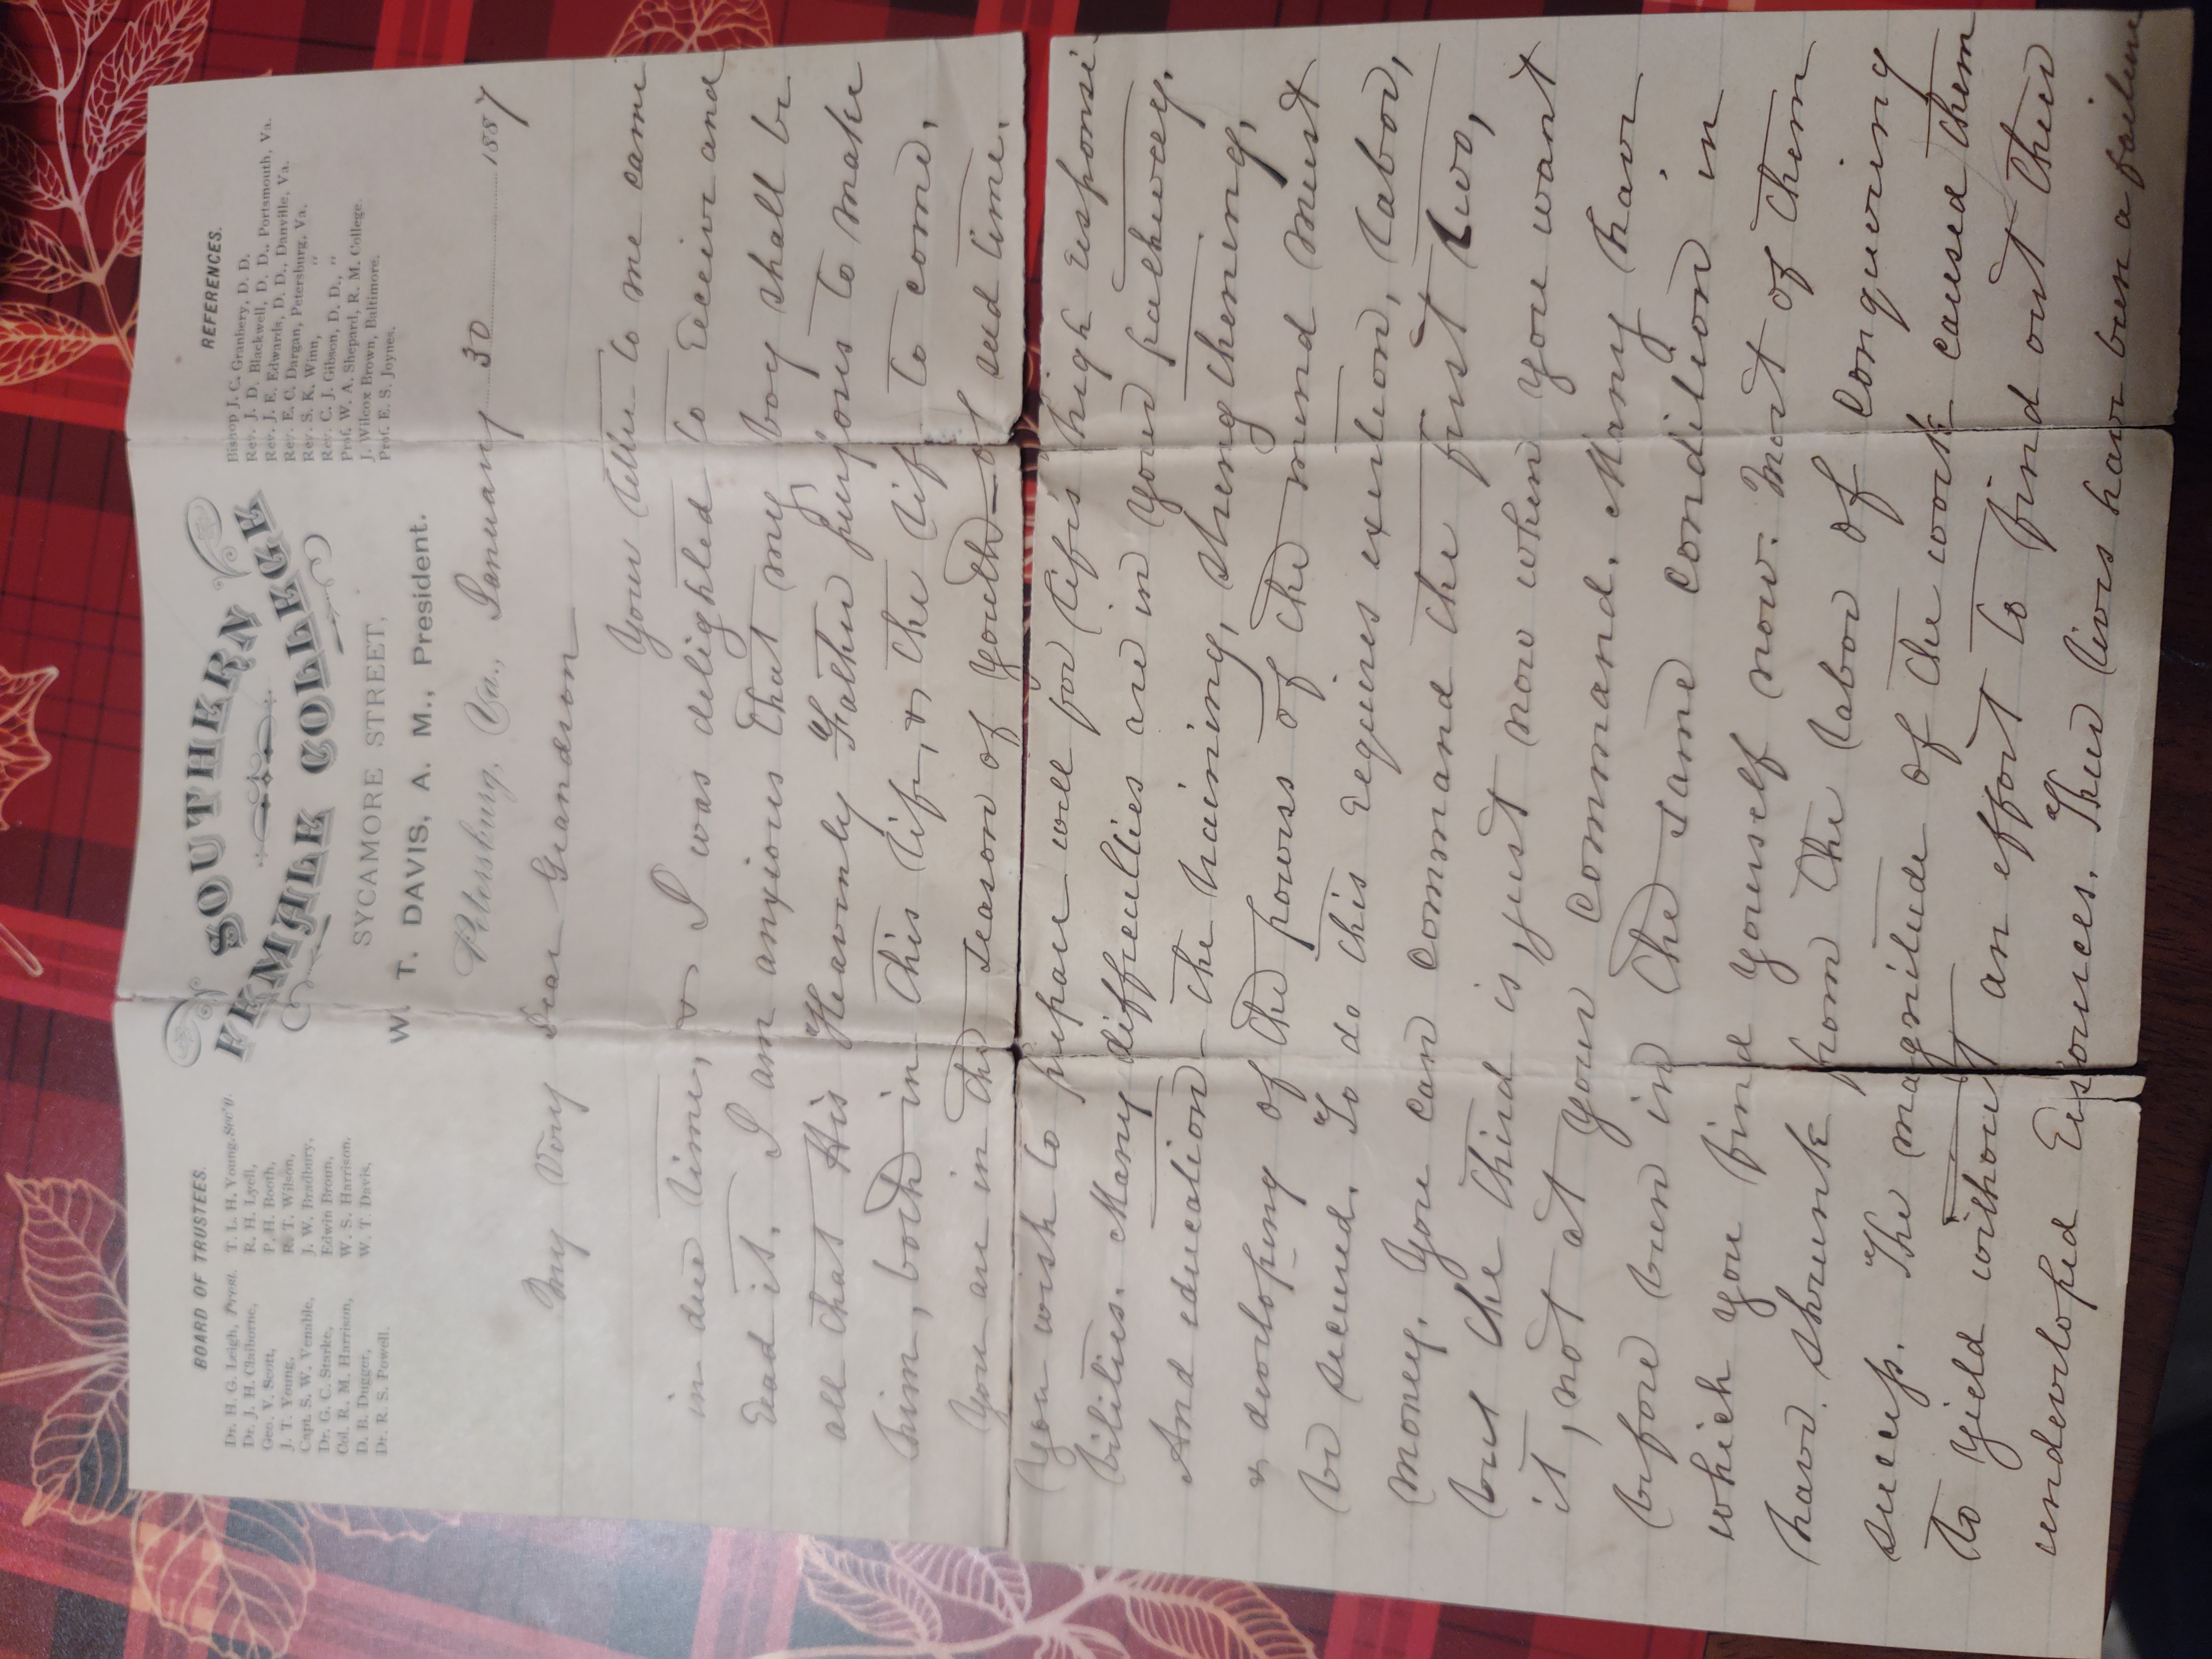 BOARD OF TRUSTEES.
Dr. H. G. Leigh, Prest. T. L. H. Young, Sec'y.
Dr. J. H. Claiborne, R. H. Lyell,
Geo. V. Scott, P. H. Booth,
J. T. Young, R. T. Wilson,
Capt. S. W. Venable, J. W. Bradbury,
Dr. G. C. Starke, Edwin Broun,
Col. R. M. Harrison, W. S. Harrison.
D. B. Dugger, W. T. Davis,
Dr. R. S. Powell.
SOUTHERN
FEMALE COLLEGE
SYCAMORE STREET,
W. T. DAVIS, A. M., President.
REFERENCES.
Bishop J. C. Granbery, D. D.
Rev. J. D. Blackwell, D. D., Portsmouth, Va.
Rev. J. E. Edwards, D. D., Danville, Va.
Rev. E. C. Dargan, Petersburg, Va.
Rev. S. K. Winn, "
Rev. C. J. Gibson, D. D., "
Prof. W. A. Shepard, R. M. College.
J. Wilcox Brown, Baltimore.
Prof. E. S. Joynes.
Petersburg, Va., January 30 1887
My Very Dear Grandson
Your letter to me came
in due time, & I was delighted to receive and
read it. I am anxious that my boy shall be
all that His Heavenly Father purposes to make
him, both in this life, & the life to come.
You are in the season of youth—of seed time.
You wish to prepare well for life's high responsi-
bilities. Many difficulties are in your pathway.
And education—the training, strengthening,
& developing of the powers of the mind must
be secured. To do this requires exertion, labor,
money. You can command the first two,
but the third is just now when you want
it, not at your command. Many have
before been in the same condition in
which you find yourself now. Most of them
have shrunk from the labor of conquering
success. The magnitude of the work caused them
to yield without an effort to find out their
undeveloped resources. Their lives have been a failure